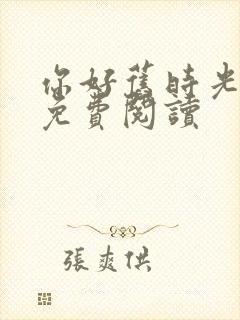 你好舊時光
免費閱讀
張爽供